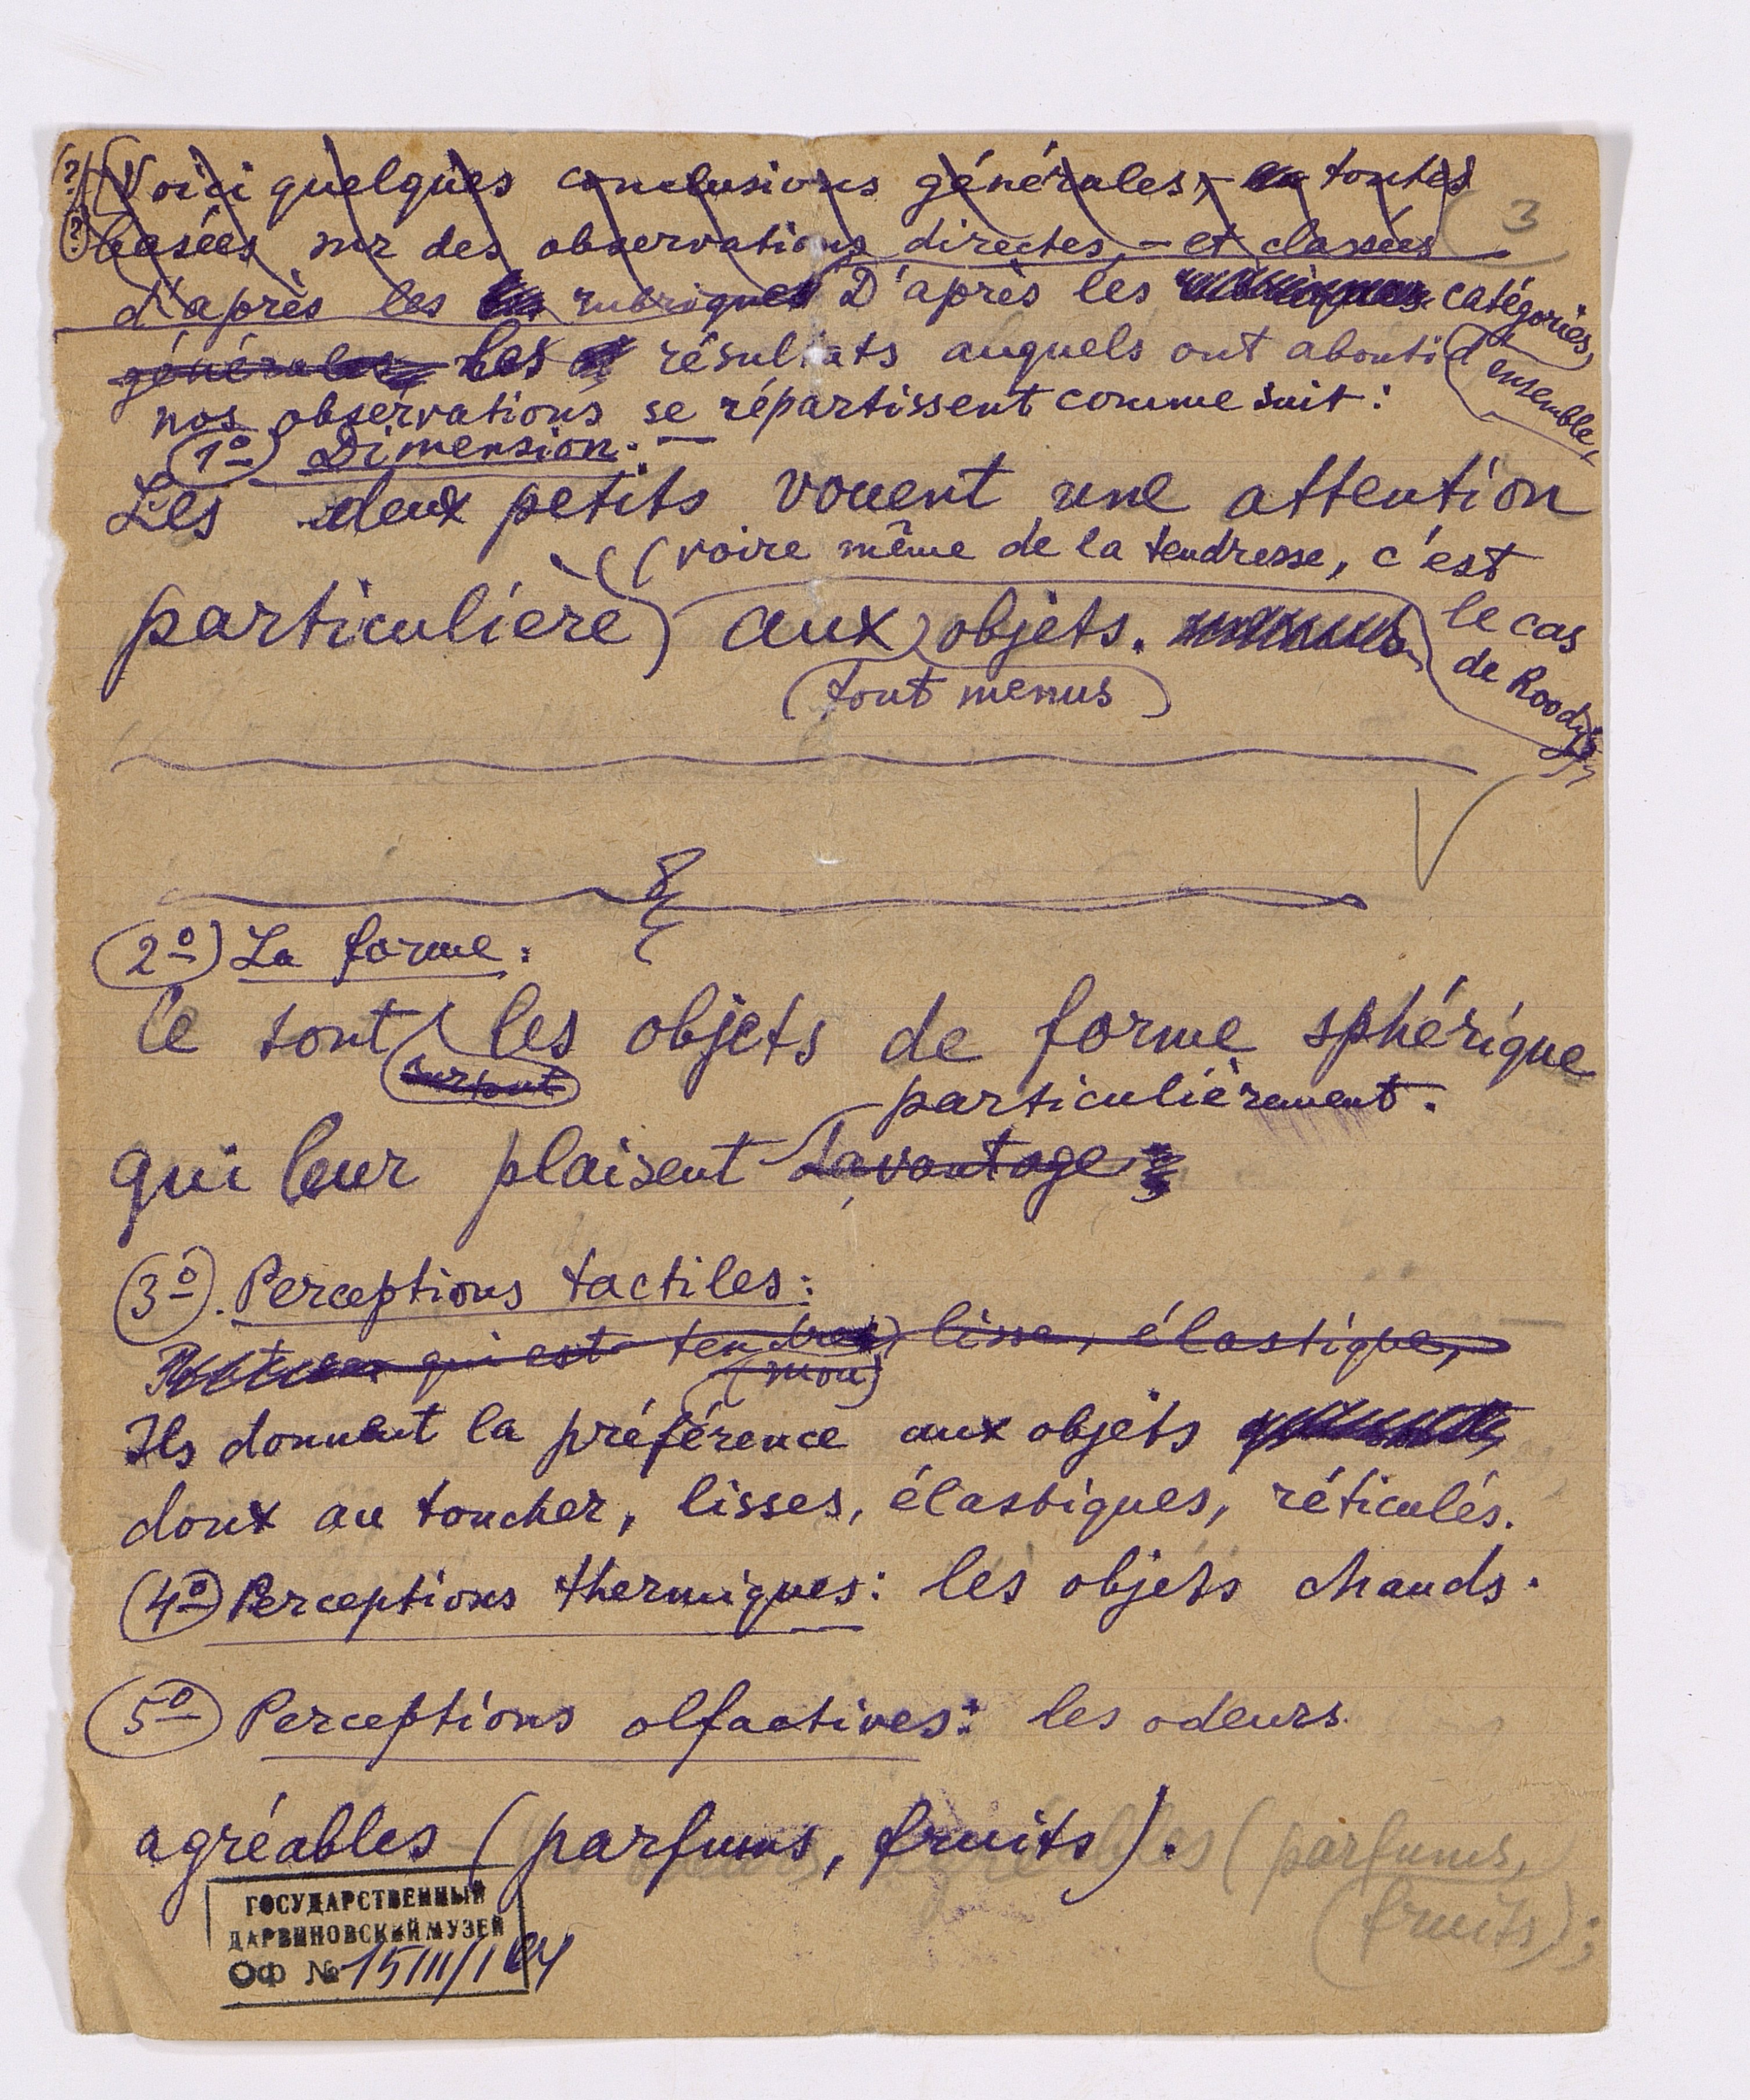 (Voici quelques conclusions générales, - toutes
basées sur des observations directes, - et classées
3
d'après les rubriques D'après les catégories
d'ensemble,
générales Les résultats auquels ont abouti
nos observations se répartissent comme suit:
1º) Dimension: —
Les deux petits vouent une attention
(voire même de la tendresse, c'est
le cas
de Roody)
particulière aux objets.
(tout menus)
2º) La forme:
Ce sont les objets de forme sphérique
surtout
particulièrement.
qui leur plaisent davantage
3º). Perceptions tactiles:
qui est tendre, lisse, élastique,
(mou)
Ils donnent la préférence aux objets
doux au toucher, lisses, élastiques, réticulés.
4º) Perceptions thermiques: les objets chauds.
5º) Perceptions olfactives: les odeurs
agréables (parfums, fruits).
agréables (parfums,
(fruits);
ГОСУДАРСТВЕННЫЙ
ДАРВИНОВСКИЙ МУЗЕЙ
ОФ №